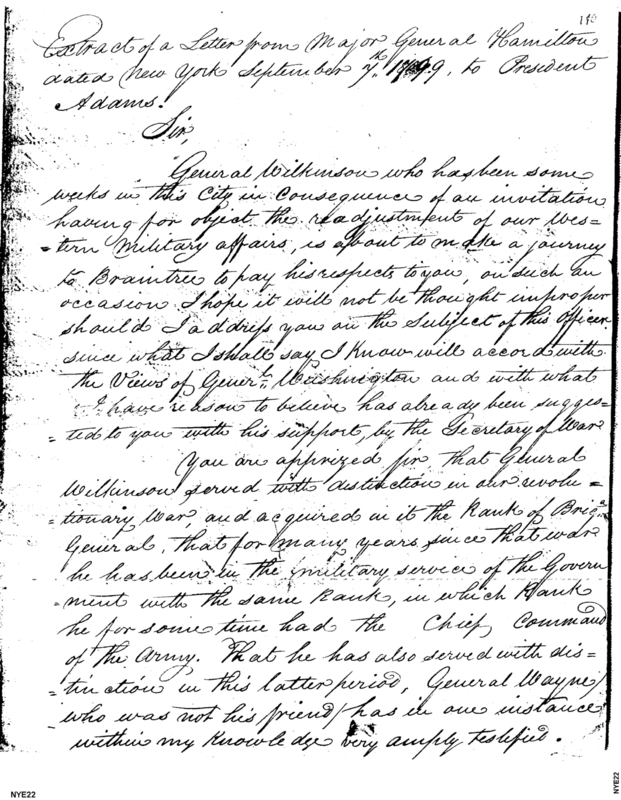 110
Extract of a Letter from Major General Hamilton
dated New York September 7th. 1799, to President
Adams.
Sir,
General Wilkinson who has been some
weeks in this City in Consequence of an invitation
having for object the readjustment of our Wes=
=tern Military affairs, is about to make a journey
to Braintree to pay his respects to you, on such an
occasion I hope it will not be thought improper
should I address you on the Subject of this Officer
since what I shall say I Know will accord with
the Views of Generl. Washington and with what
I have reason to believe has already been sugges=
=ted to you with his support, by the Secretary of War
You are apprized sir that General
Wilkinson served with distinction in our revolu=
=tionary War, and acquired in it the Rank of Brigr.
General, that for many years since that war
he has been in the military service of the Govern
=ment with the same Rank, in which Rank
he for some time had the Chief Command
of the Army. That he has also served with dis=
=tinction in this latter period, General Wayne/
who was not his friend/ has in one instance
within my Knowledge very amply testified.
NYE22
NYE22